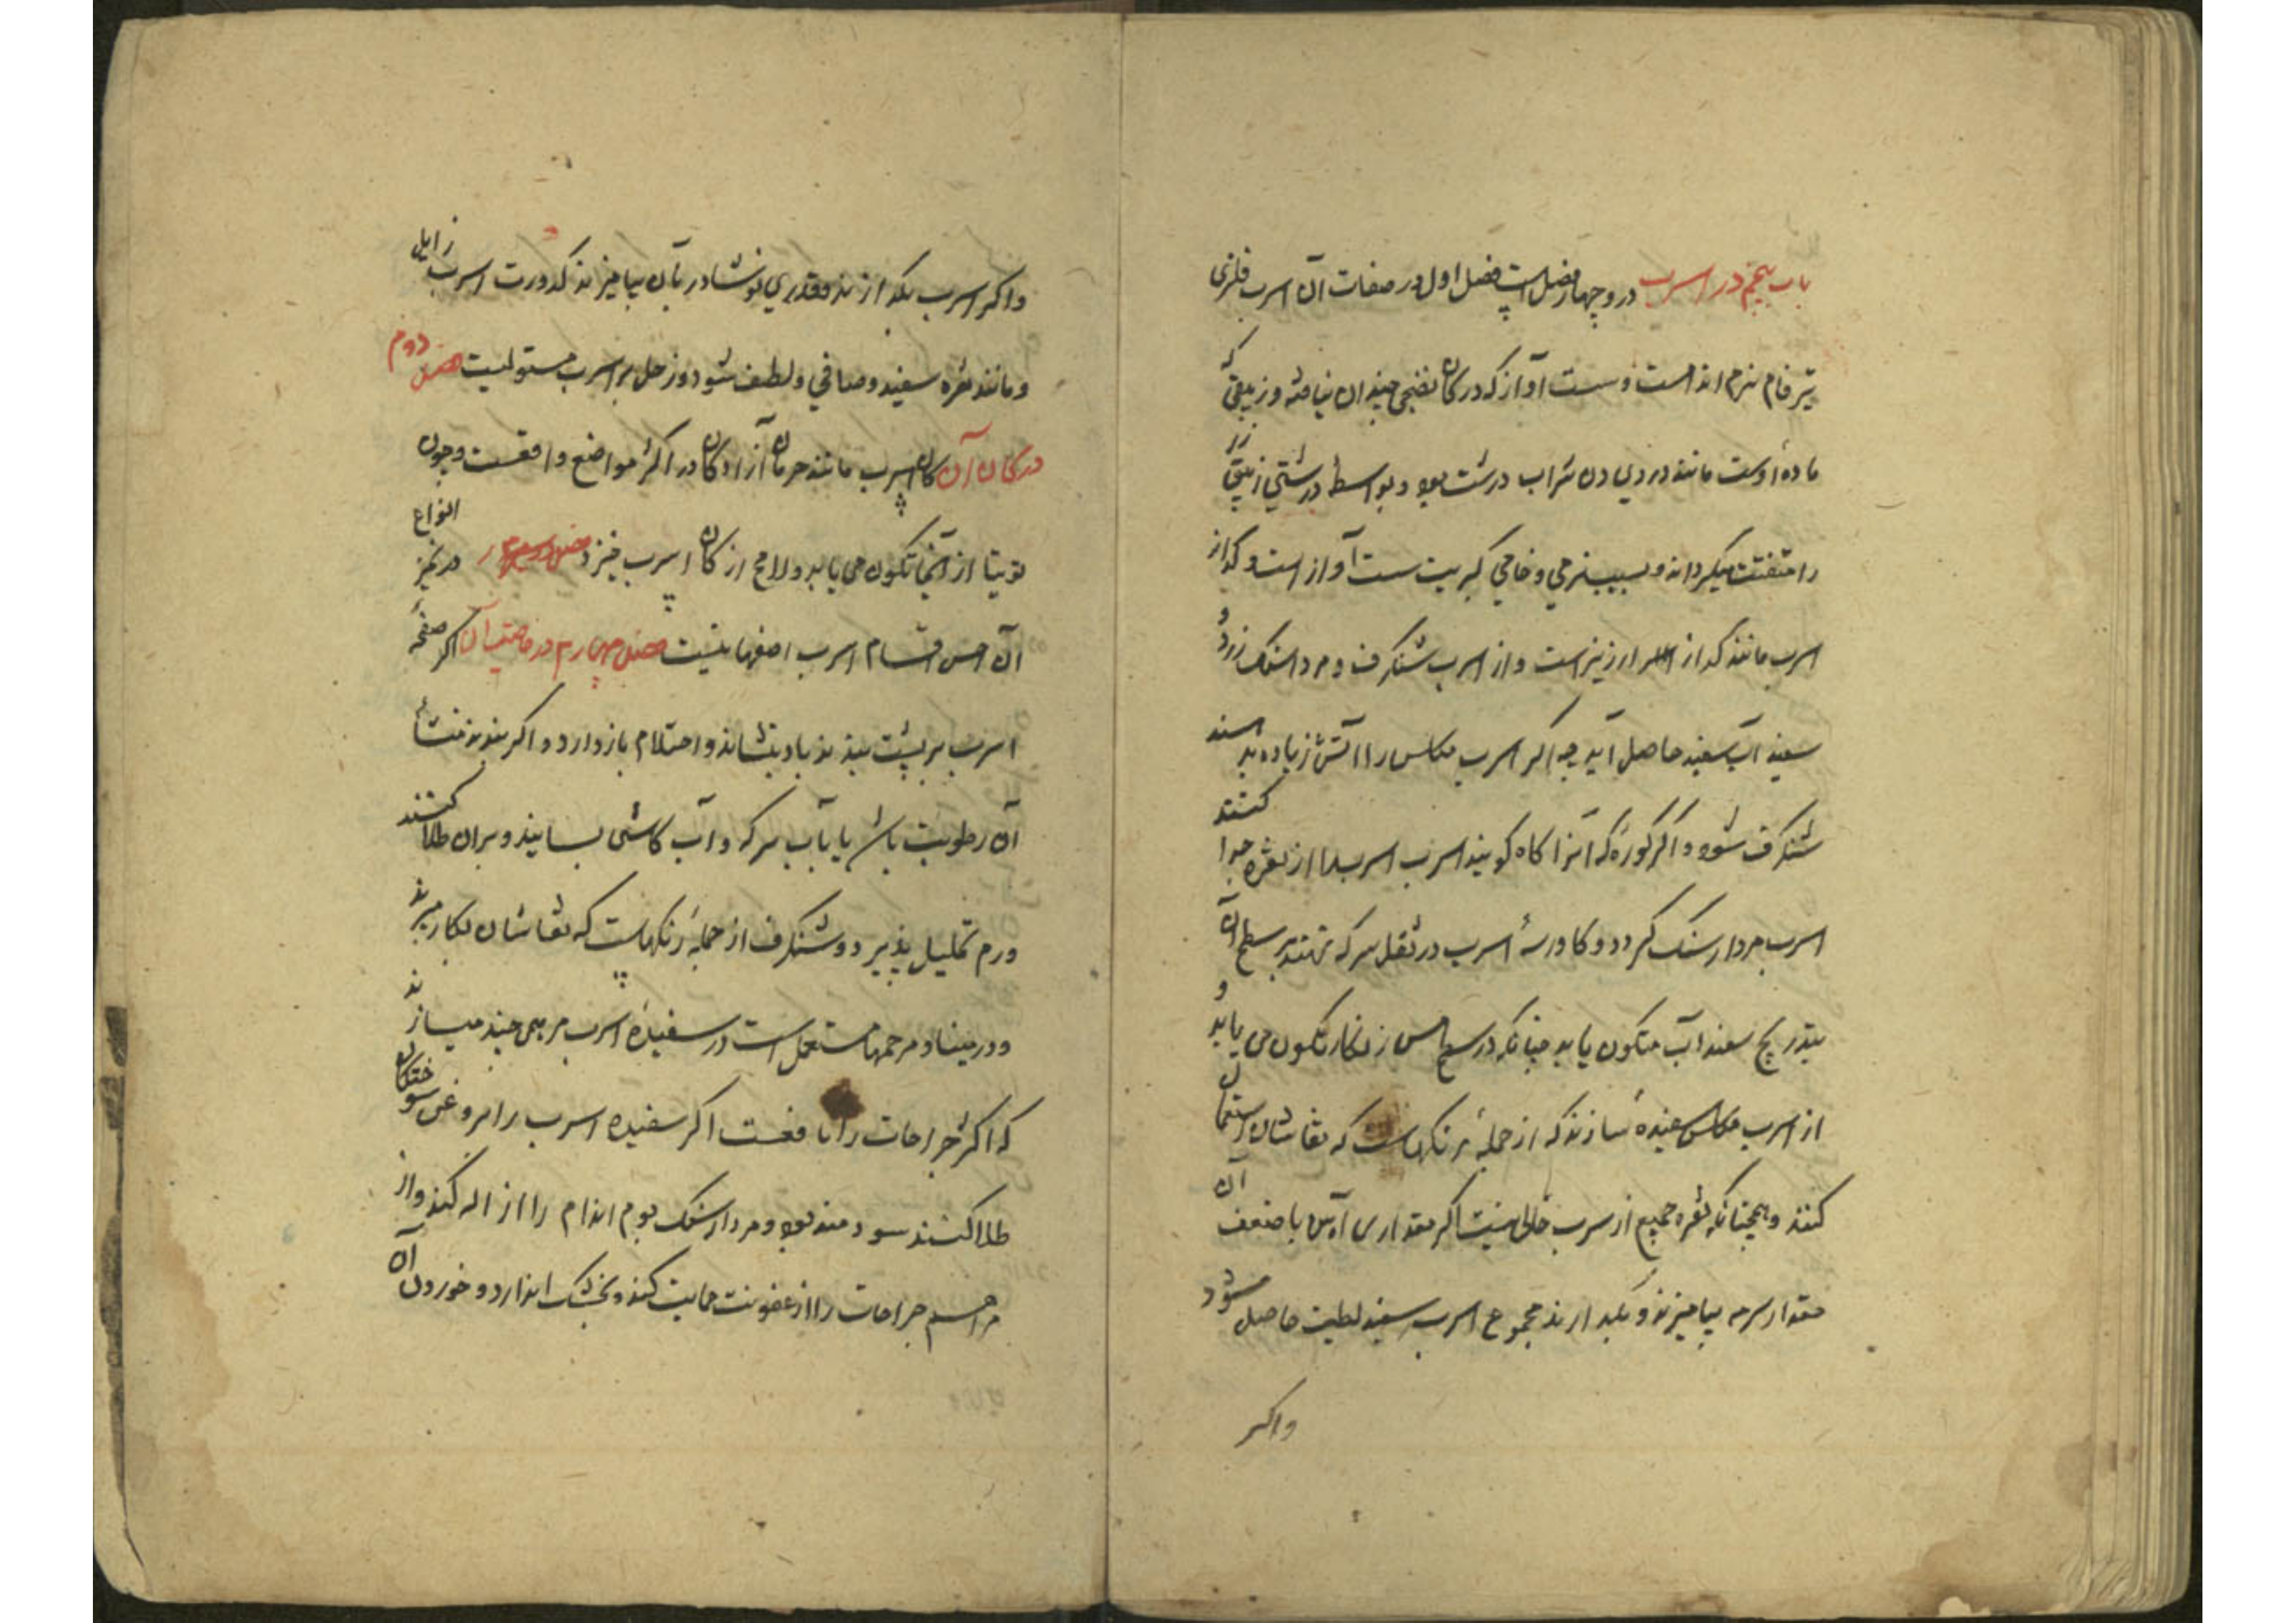 باب پنجم در اسرب دروچهار فصل است فصل اول در صفات آن اسرب فلزی
تیره فام نرم اندامست و سست آواز که در کان نضجی چندان نیافته و زیبقی که
ماده اوست مانند دردی دن شراب درشت بود و بواسطه درشتی زیبق
را متفتت میکرداند و بسبب نرمی و خامی کبریت سست آواز است و کداز
اسرب مانند کداز ارزیز است و از اسرب شنکرف و مرداسنک زرد و
سفید آب سفید حاصل آید چه اکر اسرب مکلس را آتش زیاده بد
شنکرف شود و اکر کوره که آنرا کاه کویند اسرب را از نقره جدا کنند
اسرب مردار سنک کردد و کاورسه اسرب در ثقل سرکه نهند بر سطح آن
بتدریج سفید آب متکون یابد چنانکه در سطح مس زنکار تکون می یابد و
از اسرب مکلس سفیده سازند که از جمله رنکهاست که نقاشان استعمال
کنند و همچنانکه نقره جمیع از سرب خالی نیست اکر مقداری با ضعف آن
مقدار سرمه بیامیزند و بکدازند مجموع اسرب سفید لطیف حاصل شود
واکر
واکر اسرب بکدازند و قدری نوشادر بآن بیامیزند کدورت اسرب زایل
و مانند نقره سفید و صافی و لطیف شود و زحل بر اسرب مستولیست فصل دوم
در کان آن کان اسرب مانند حرمان آزادکان در اکثر مواضع واقعست و چون
توتیا از آنجا تکون می یابد و لامح از کان اسرب خیزد فصل سیم در تمیز انواع
آن احسن اقسام اسرب اصفهانیست فصل چهارم در خاصیت آن اکر صفحه
اسرب بر پشت بندند باد بنشاند و احتلام بازدارد و اکر بندند منشأ
آن رطوبت باشد یا بآب سرکه و آب کاسنی بسایند و بران طلا کنند
ورم تحلیل پذیرد و شنکرف از جمله رنکهاست که نقاشان بکار میبرند
و در مینا و مرهمها مستعمل است در سفیده اسرب مرهمی چند میسازند
که اکثر جراحات را نافعست اکر سفیده اسرب را بروغن سوختکان
طلا کنند سودمند بود و مردارسنک بوم اندام را ازاله کند و از
مراهم جراحات را از عفونت حمایت کند و بخشک اندارد و خوردن آن